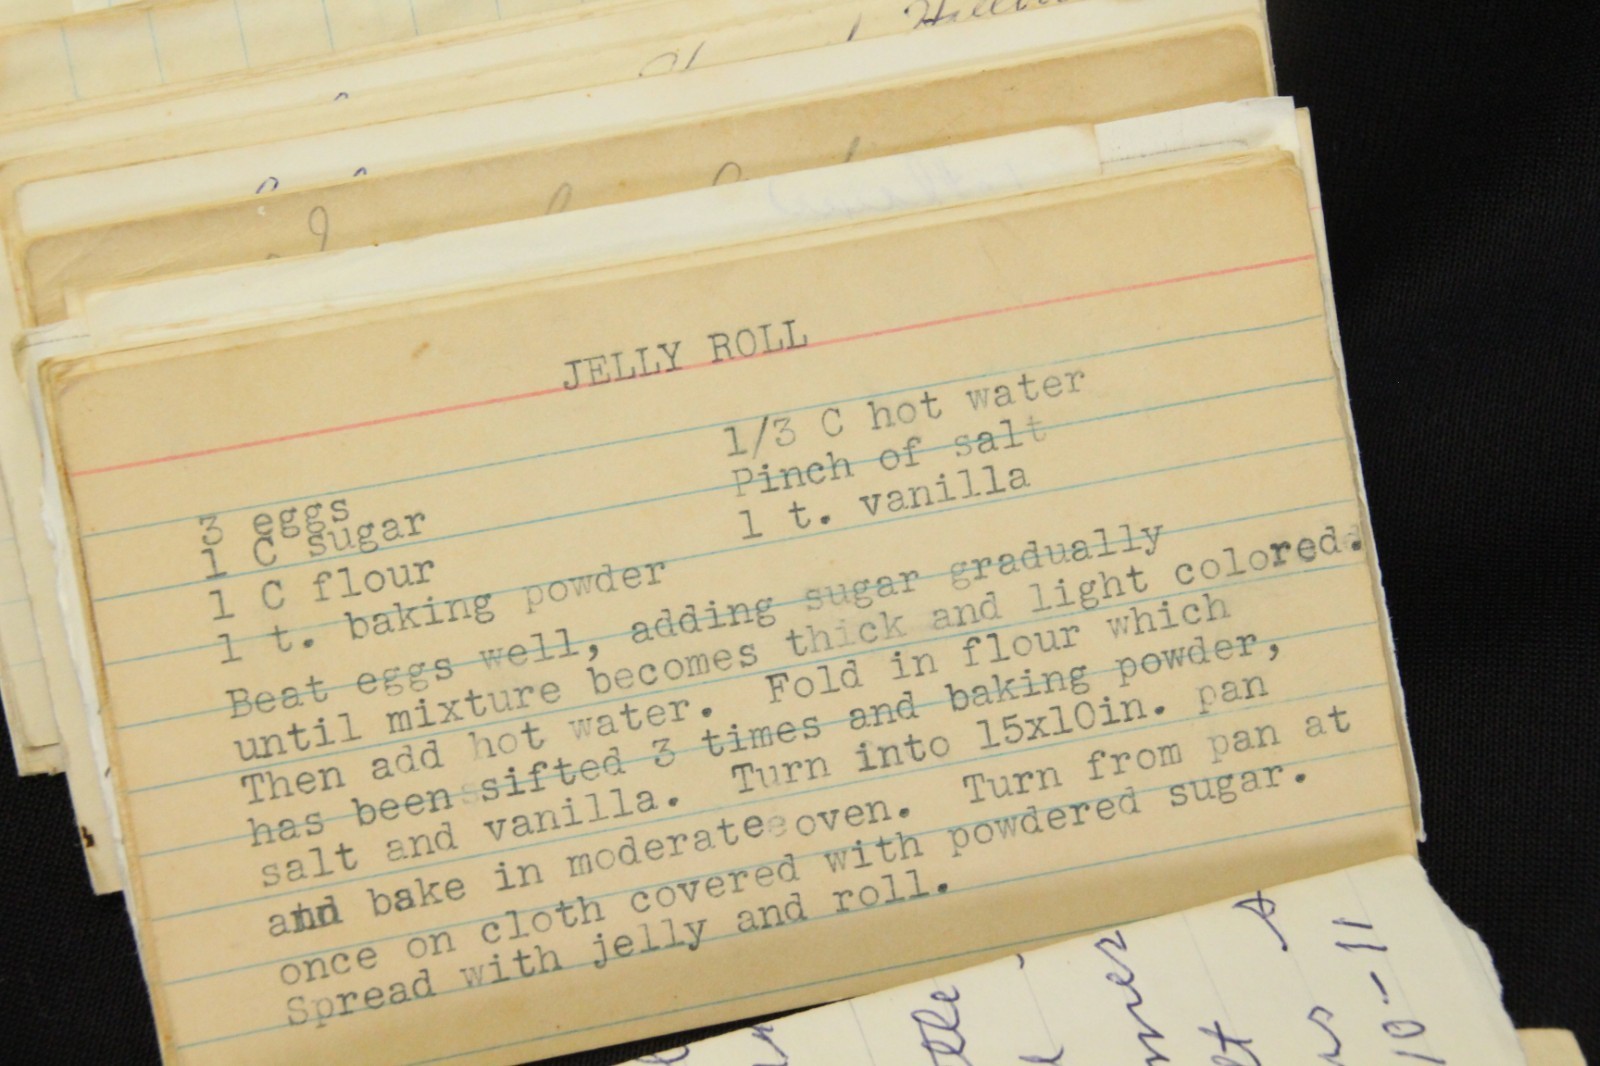 JELLY ROLL
1/3 C hot water
Pinch of salt
1 t. vanilla
3 eggs
1 C sugar
1 C flour
1 t. baking powder
Beat eggs well, adding sugar gradually
until mixture becomes thick and light colored.
Then add hot water. Fold in flour which
has been sifted 3 times and baking powder,
salt and vanilla. Turn into 15x10in. pan
and bake in moderate oven. Turn from pan at
once on cloth covered with powdered sugar.
Spread with jelly and roll.
10-11